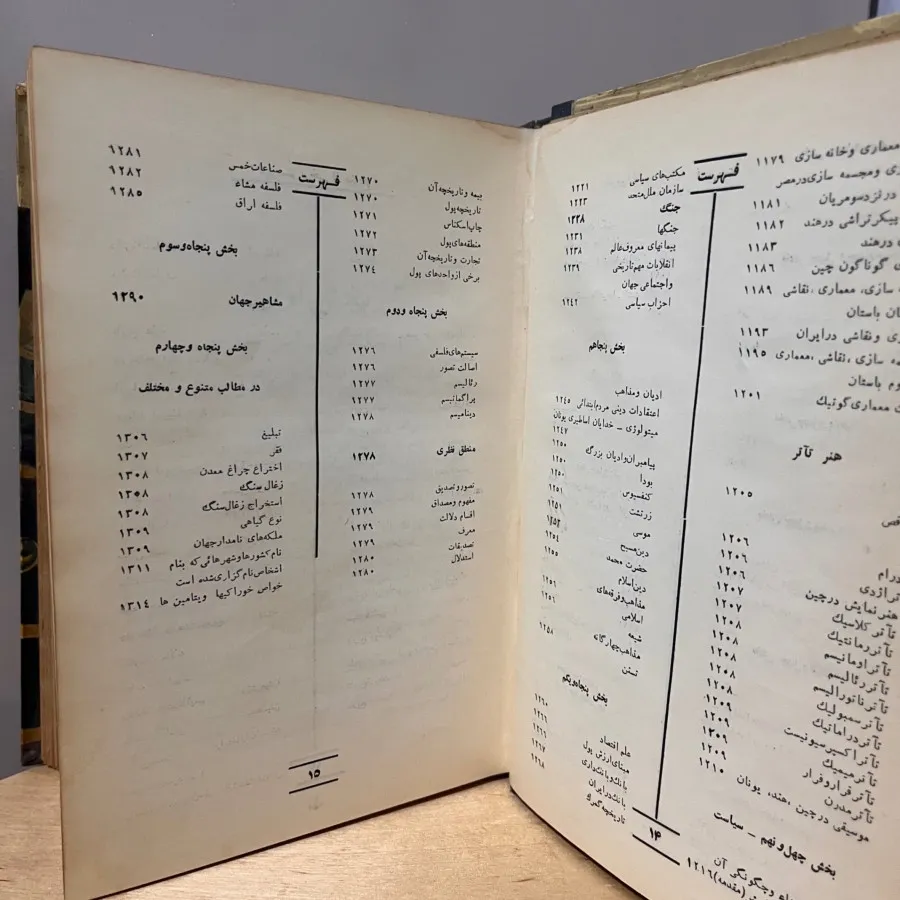 فهرست
معماری وخانه سازی ۱۱۷۹
ی ومجسمه سازی‌درمصر
درنزدسومریان ۱۱۸۱
پیکرتراشی درهند ۱۱۸۲
درهند ۱۱۸۳
گوناگون چین ۱۱۸۶
سازی، معماری، نقاشی ۱۱۸۹
باستان
ی ونقاشی درایران ۱۱۹۳
سازی، نقاشی، معماری ۱۱۹۵
باستان
معماری گوتیك ۱۲۰۱
هنر تآتر
۱۲۰۵
۱۲۰۶
۱۲۰۶
درام ۱۲۰۶
تراژدی ۱۲۰۷
هنرنمایش درچین ۱۲۰۷
تآتر کلاسیك ۱۲۰۸
تآتر رمانتیك ۱۲۰۸
تآتر اومانیسم ۱۲۰۸
تآتر رئالیسم ۱۲۰۸
تآتر ناتورالیسم ۱۲۰۸
تآتر سمبولیك ۱۲۰۹
تآتر دراماتیك ۱۲۰۹
تآتر اکسپرسیونیست ۱۲۰۹
تآتر میمیك ۱۲۰۹
تآتر قراروفرار ۱۲۱۰
تآتر مدرن
موسیقی درچین، هند، یونان
بخش چهل‌ونهم ـ سیاست
وچگونگی آن
(مقدمه) ۱۲۱۶
مکتب‌های سیاسی ۱۲۲۱
سازمان ملل‌متحد ۱۲۲۳
جنگ ۱۲۲۸
جنگها ۱۲۳۱
پیمانهای معروف‌عالم ۱۲۳۸
انقلابات مهم‌تاریخی ۱۲۳۹
واجتماعی جهان
احزاب سیاسی ۱۲۴۲
بخش پنجاهم
ادیان ومذاهب
اعتقادات دینی مردم‌ابتدائی ۱۲۴۵
میتولوژی ـ خدایان اساطیری یونان
۱۲۴۷
پیامبران‌وادیان بزرگ ۱۲۵۰
بودا ۱۲۵۰
کنفسیوس ۱۲۵۰
زرتشت ۱۲۵۱
موسی ۱۲۵۱
دین‌مسیح ۱۲۵۳
حضرت محمد ۱۲۵۴
دین‌اسلام ۱۲۵۵
مذاهب‌وفرقه‌های
اسلامی ۱۲۵۶
شیعه ۱۲۵۶
مذاهب‌چهارگانه
تسنن ۱۲۵۸
بخش پنجاه‌ویکم
علم اقتصاد ۱۲۶۰
مبنای‌ارزش پول ۱۲۶۶
بانك‌وبانك‌داری ۱۲۶۶
بانك‌درایران ۱۲۶۷
تاریخچه‌گمرك ۱۲۶۸
۱۴
فهرست
بیمه وتاریخچه‌آن ۱۲۷۰
تاریخچه‌پول ۱۲۷۰
چاپ‌اسکناس ۱۲۷۱
منطقه‌های‌پول ۱۲۷۲
تجارت وتاریخچه‌آن ۱۲۷۳
برخی ازواحدهای پول ۱۲۷۴
بخش پنجاه ودوم
سیستم‌های‌فلسفی ۱۲۷۶
اصالت تصور ۱۲۷۶
رئالیسم ۱۲۷۷
پراگماتیسم ۱۲۷۷
دینامیسم ۱۲۷۸
منطق فطری ۱۲۷۸
تصوروتصدیق ۱۲۷۸
مفهوم ومصداق ۱۲۷۹
اقسام دلالت ۱۲۷۹
معرف ۱۲۷۹
تصدیقات ۱۲۸۰
استدلال ۱۲۸۰
۱۲۸۱
صناعات‌خمس ۱۲۸۲
فلسفه مشاء ۱۲۸۵
فلسفه اراق
بخش پنجاه‌وسوم
مشاهیرجهان ۱۲۹۰
بخش پنجاه وچهارم
در مطالب متنوع و مختلف
تبلیغ ۱۳۰۶
فقر ۱۳۰۷
اختراع چراغ معدن ۱۳۰۸
زغال سنگ ۱۳۰۸
استخراج زغال‌سنگ ۱۳۰۸
نوع گیاهی ۱۳۰۹
ملکه‌های نامدارجهان ۱۳۰۹
نام‌کشورهاوشهرهائی‌که بنام ۱۳۱۱
اشخاص‌نام‌گزاری‌شده است
خواص خوراکیها ویتامین ها ۱۳۱۴
۱۵